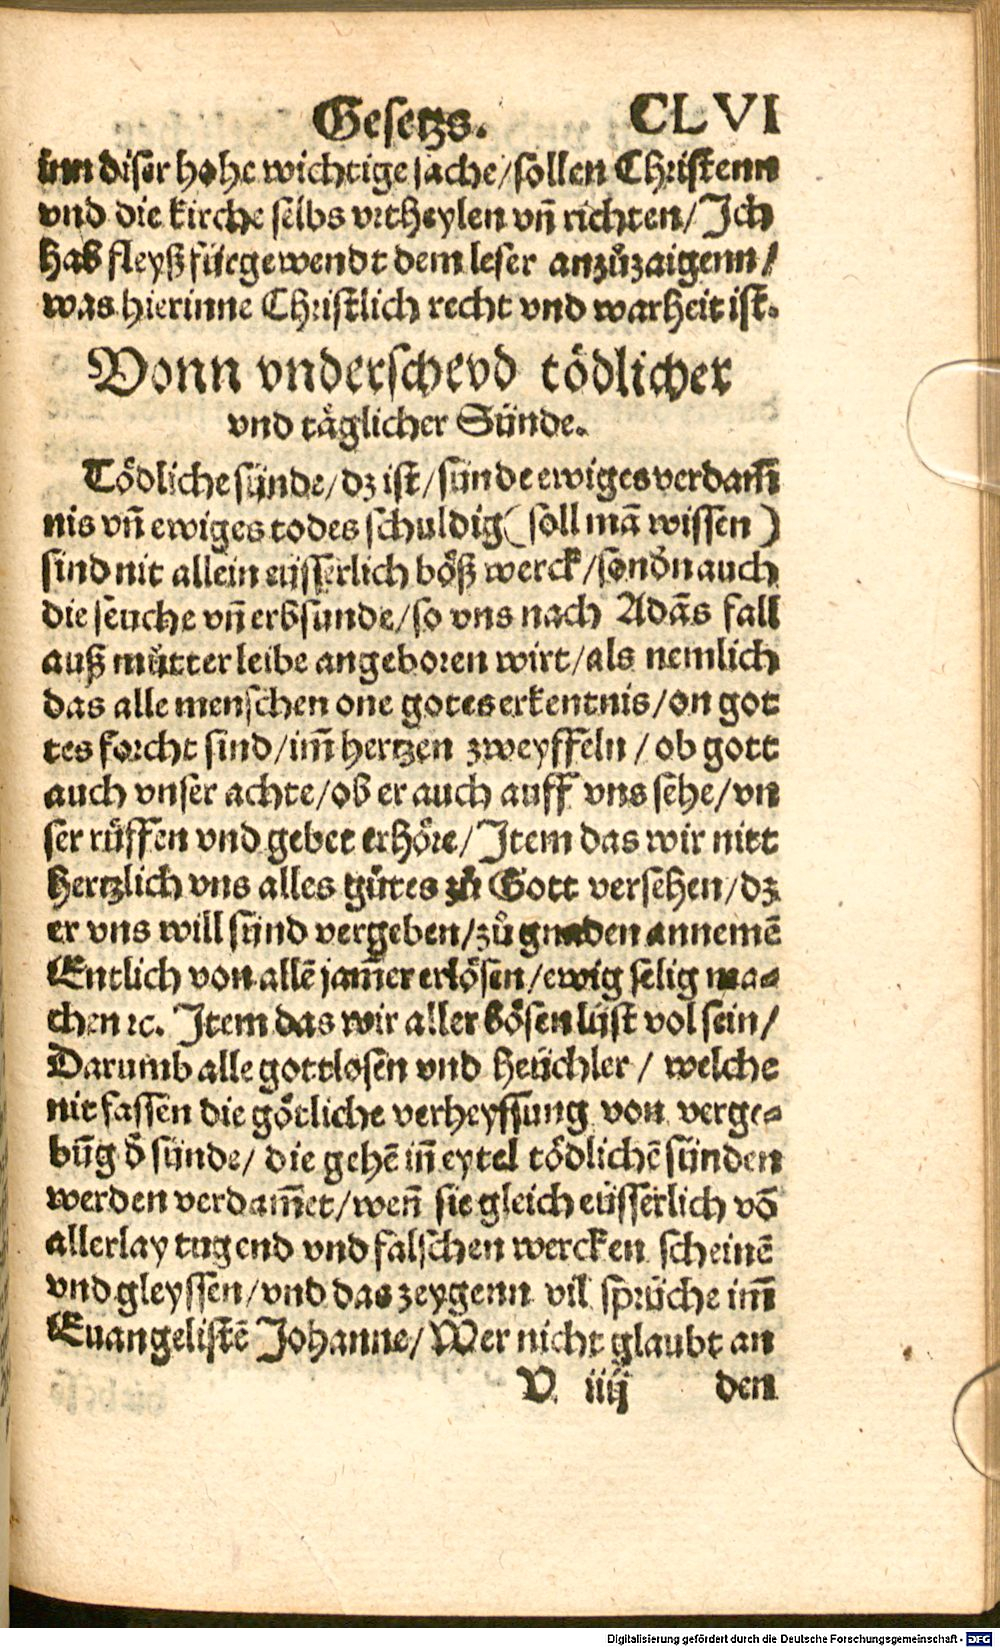 Gesetzs. CLVI
inn diser hohe wichtige sache/sollen Christenn
vnd die kirche selbs vrtheylen vñ richten/Jch
hab fleyß fürgewendt dem leser anzůzaigenn/
was hierinne Christlich recht vnd warheit ist.
Vonn vnderscheyd tödlicher
vnd täglicher Sünde.
Tödliche sünde/dz ist/sünde ewiges verdam̃
nis vñ ewiges todes schuldig(soll mã wissen)
sind nit allein eüsserlich böß werck/sonđn auch
die seuche vñ erbsunde/so vns nach Adãs fall
auß můtter leibe angeboren wirt/als nemlich
das alle menschen one gotes erkentnis/on got
tes forcht sind/im̃ hertzen zweyffeln/ob gott
auch vnser achte/ob er auch auff vns sehe/vn
ser rüffen vnd gebet erhöre/Jtem das wir nitt
hertzlich vns alles gůtes zů Gott versehen/dz
er vns will sünd vergeben/zů gnaden annemẽ
Entlich von allẽ jam̃er erlösen/ewig selig ma⸗
chen ꝛc. Jtem das wir aller bösen lüst vol sein/
Darumb alle gottlosen vnd heüchler/ welche
nit fassen die götliche verheyssung von verge⸗
bũg đ sünde/ die gehẽ iñ eytel tödlichẽ sünden
werden verdam̃et/weñ sie gleich eüsserlich võ
allerlay tugend vnd falschen wercken scheinẽ
vnd gleyssen/vnd das zeygenn vil sprüche im̃
Euangelistẽ Johanne/Wer nicht glaubt an
V iiij den
Digitalisierung gefördert durch die Deutsche Forschungsgemeinschaft - DFG